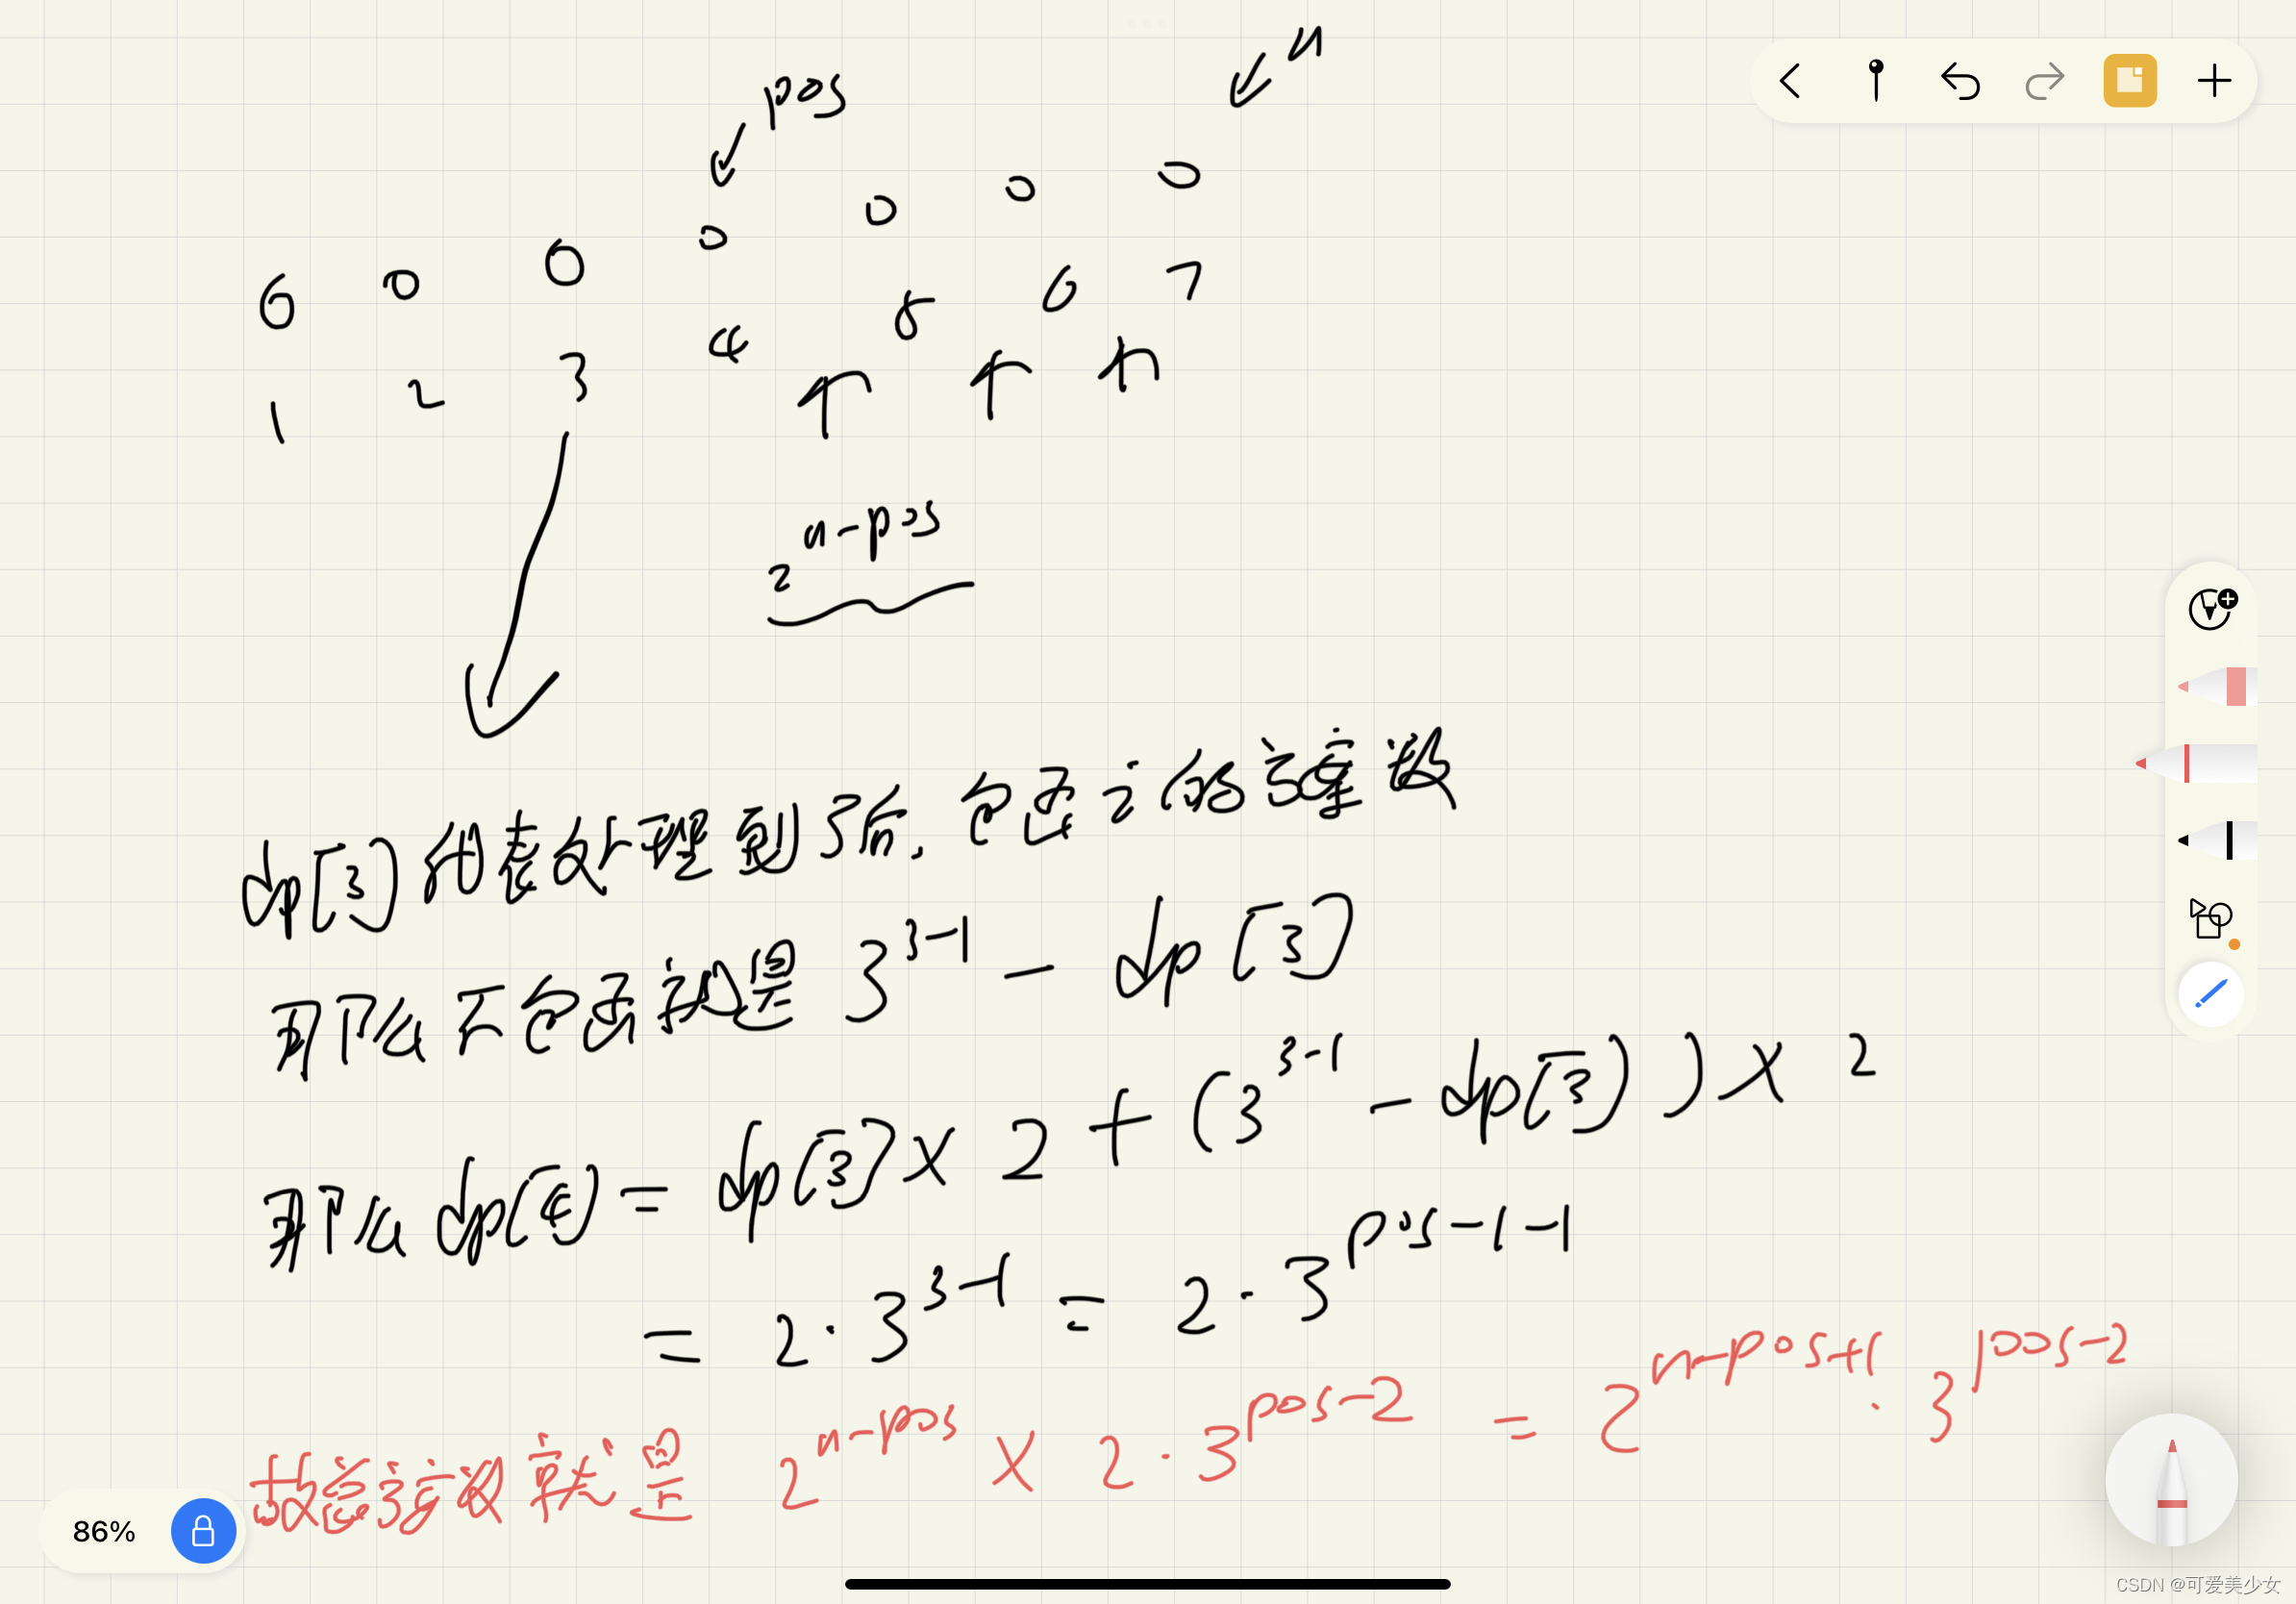 n
pos
0 0 0 0 0 0 0
1 2 3 4 5 6 7
2^{n-pos}
dp[3]代表处理到3所包含 i 的方案数
那么不包含就是 3^{3-1} - dp[3]
那么dp[4] = dp[3] × 2 + (3^{3-1} - dp[3]) × 2
= 2 · 3^{3-1} = 2 · 3^{pos-1-1}
故答案数就是 2^{n-pos} × 2 · 3^{pos-2} = 2^{n-pos+1} · 3^{pos-2}
86%
CSDN @可爱美少女